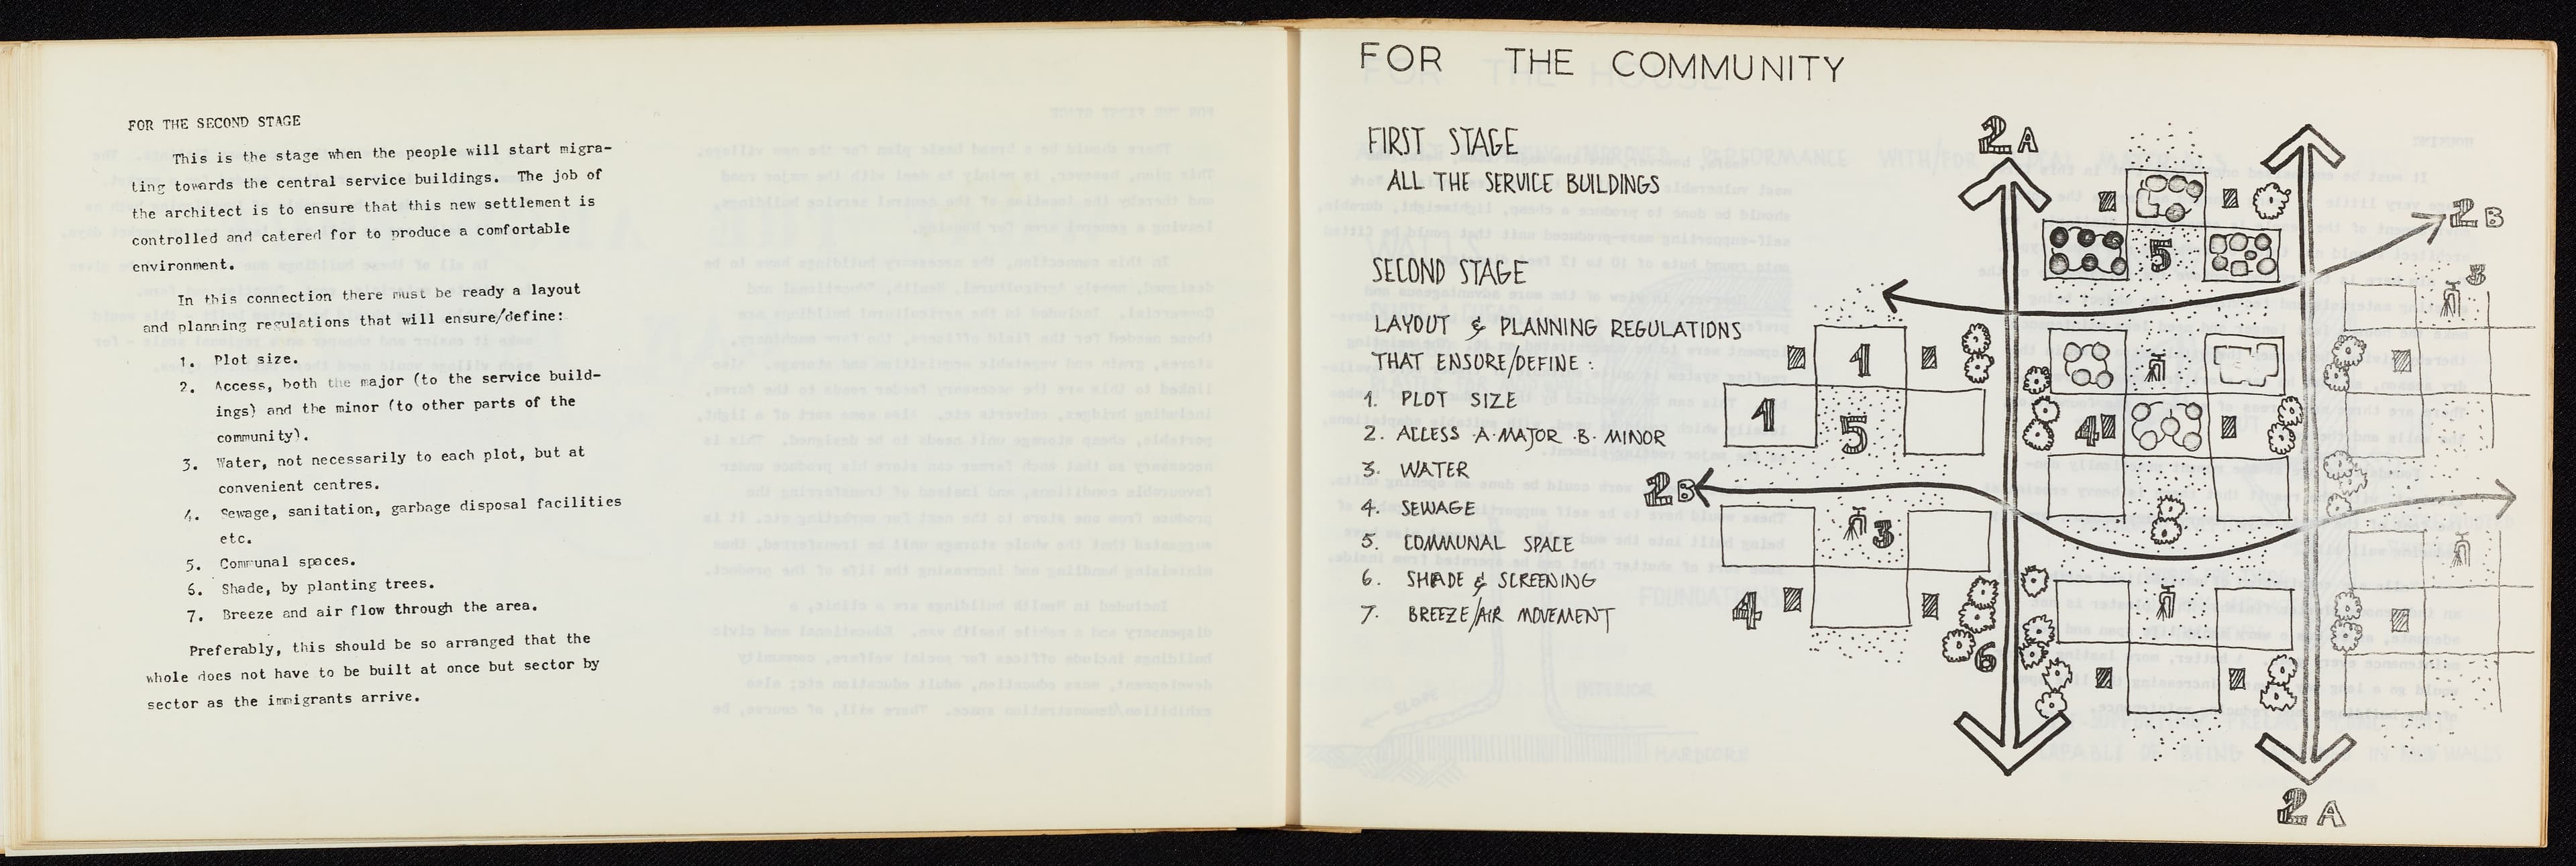 FOR THE SECOND STAGE
This is the stage when the people will start migra-
ting towards the central service buildings. The job of
the architect is to ensure that this new settlement is
controlled and catered for to produce a comfortable
environment.
In this connection there must be ready a layout
and planning regulations that will ensure/define:
1. Plot size.
2. Access, both the major (to the service build-
ings) and the minor (to other parts of the
community).
3. Water, not necessarily to each plot, but at
convenient centres.
4. Sewage, sanitation, garbage disposal facilities
etc.
5. Communal spaces.
6. Shade, by planting trees.
7. Breeze and air flow through the area.
Preferably, this should be so arranged that the
whole does not have to be built at once but sector by
sector as the immigrants arrive.
FOR THE COMMUNITY
FIRST STAGE
ALL THE SERVICE BUILDINGS
SECOND STAGE
LAYOUT & PLANNING REGULATIONS
THAT ENSURE/DEFINE:
1. PLOT SIZE
2. ACCESS·A·MAJOR·B·MINOR
3. WATER
4. SEWAGE
5. COMMUNAL SPACE
6. SHADE & SCREENING
7. BREEZE/AIR MOVEMENT
2A
2B
5
3
1
1
5
4
2B
3
4
6
2A